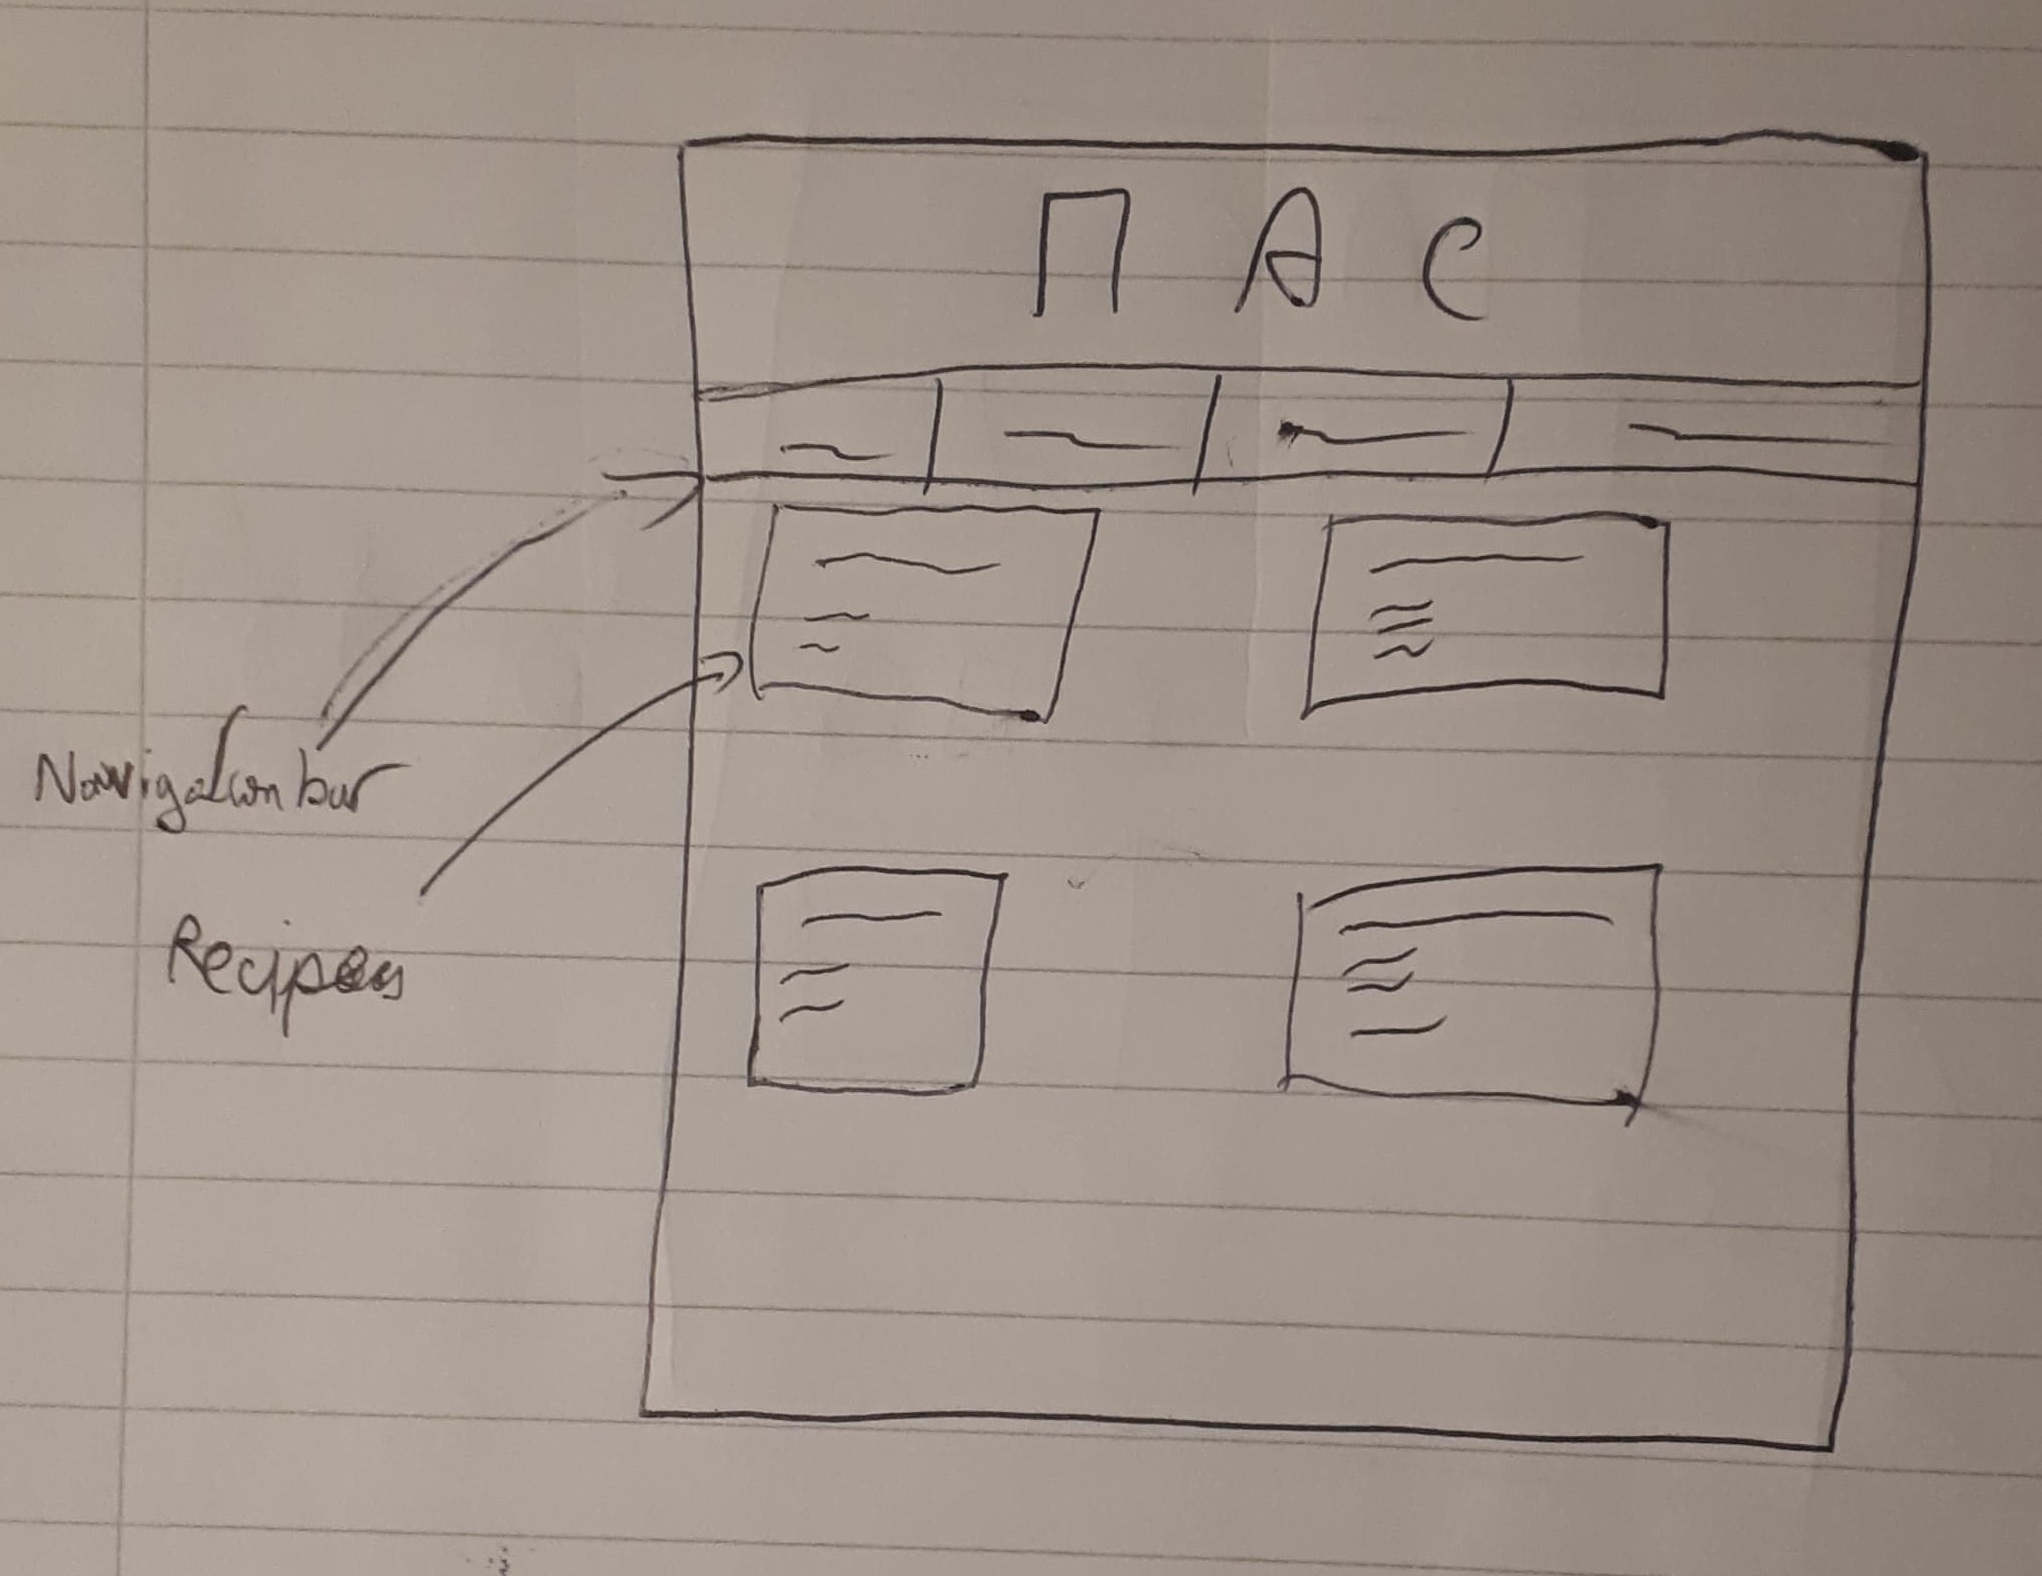 П А С
Navigation bar
Recipes